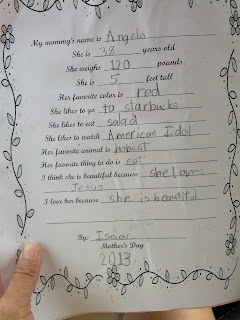 My mommy's name is Angela
She is 38 years old
She weighs 120 pounds
She is 5 feet tall
Her favorite color is red
She likes to go to starbucks
She likes to eat salad
She likes to watch American Idol
Her favorite animal is bobcat
Her favorite thing to do is eat
I think she is beautiful because she loves
Jesus
I love her because she is beautiful
By: Isaac
Mother's Day
2013